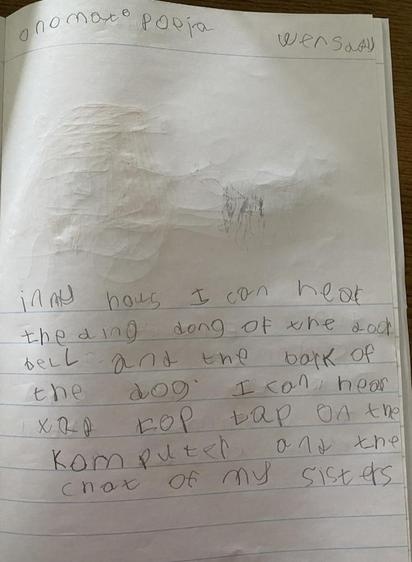 onomatopoeia
wensday
in my hous I can hear
the ding dong of the door
bell and the bark of
the dog. I can hear
tap tap tap on the
Komputer and the
chat of my sisters